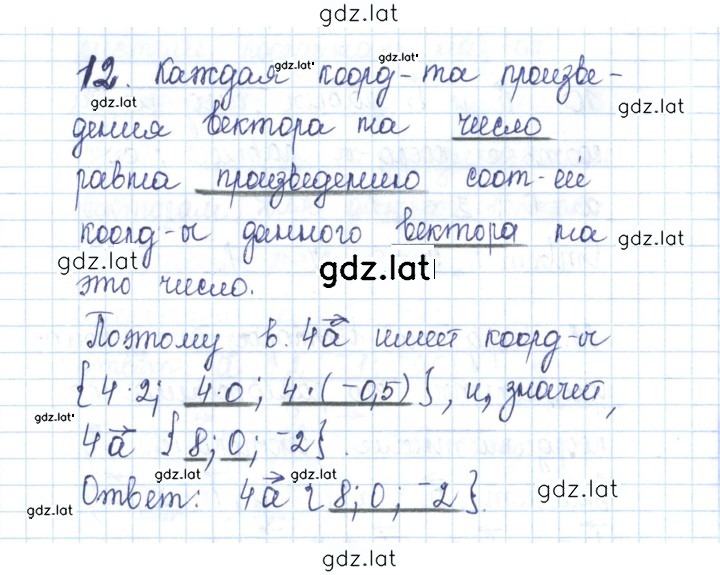 gdz.lat
12. Каждая коорд-та произве-
gdz.lat
gdz.lat
gdz.lat
gdz.lat
дения вектора на число
равна произведению соот-ей
коорд-ы данного вектора на
gdz.lat
gdz.lat
gdz.lat
это число.
Поэтому в. 4a⃗ имеет коорд-ы
{4·2; 4·0; 4·(-0,5)}, и, значит,
gdz.lat
4a⃗ {8; 0; -2}.
gdz.lat
gdz.lat
Ответ: 4a⃗ {8; 0; -2}.
gdz.lat
gdz.lat
gdz.lat